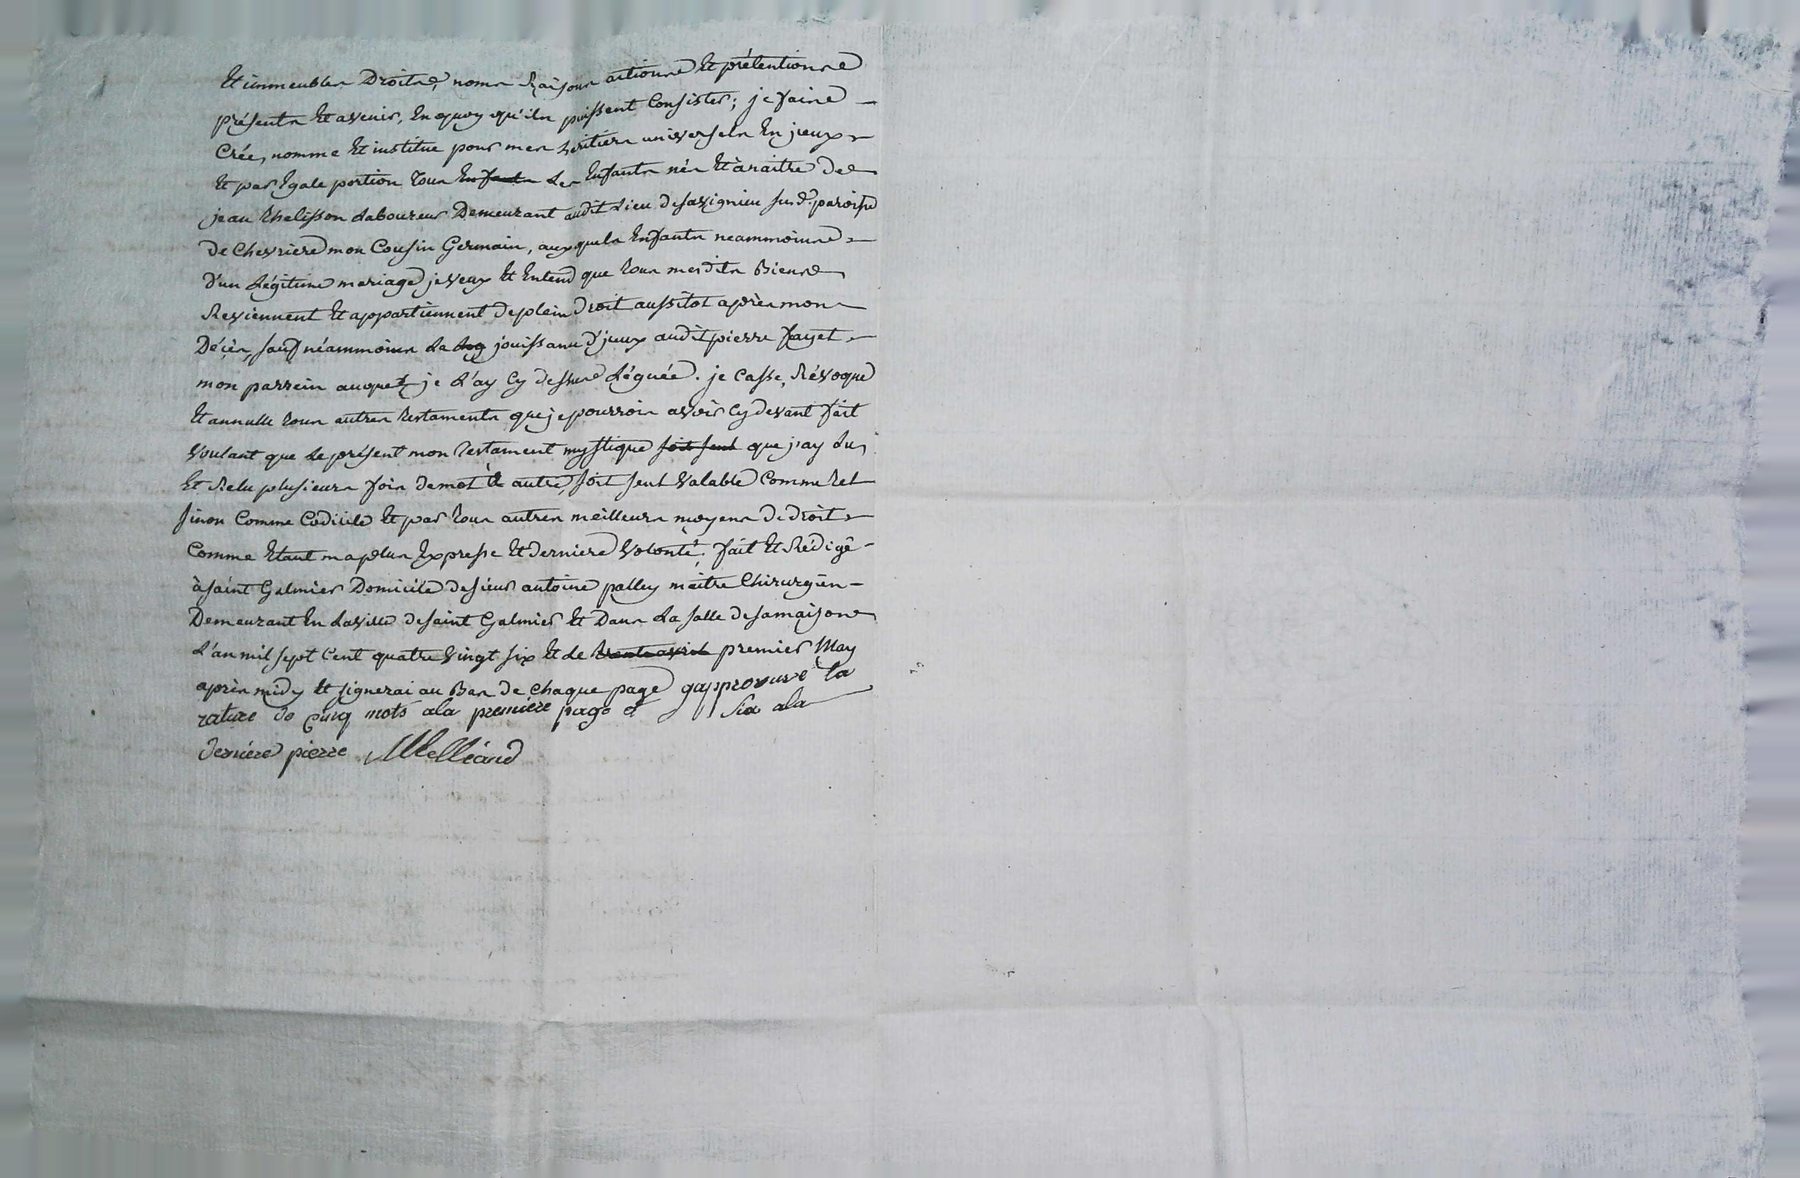 Et immeubles Droits, noms Raisons actions Et prétentions
présents Et avenir, En quoy qu'ils puissent Consister; je faire
Crée, nomme Et institue pour mes héritiers universels En jceux
Et par Egale portion tous Enfants Les Enfants nés Et à naitre de
jean Thelisson Laboureur Demeurant audit Lieu de savignieu susd. paroisse
de Chevriere mon Cousin Germain, auxquels Enfants neammoins
d'un Légitime mariage je veux Et Entend que tous mesdits Biens
Reviennent Et appartiennent de plein Droit aussitot après mon
Décès, sauf néammoins La jouissance d'jceux audit pierre fayet
mon parrein auquel je L'ay Cy dessus Léguée. je Casse, Révoque
Et annulle tous autres testaments que je pourrois avoir Cy devant fait
Voulant que Le présent mon testament mystique soit seul que j'ay Lu,
Et Relu plusieurs fois de mot à autre, soit seul Valable Comme tel
sinon Comme Codicile Et par tous autres meilleurs moyens de droit
Comme Etant ma plus Expresse Et derniere Volonté. fait Et Rédigé
à saint Galmier Domicile de sieur antoine palley maitre Chirurgien
Demeurant En La Ville de saint Galmier Et Dans La salle de sa maison
L'an mil sept Cent quatre Vingt six Et Le trente avril premier May
après midy Et signerai au Bas de Chaque page gapprouve la
rature de cinq mots ala premiere page et six ala
derniere pierre